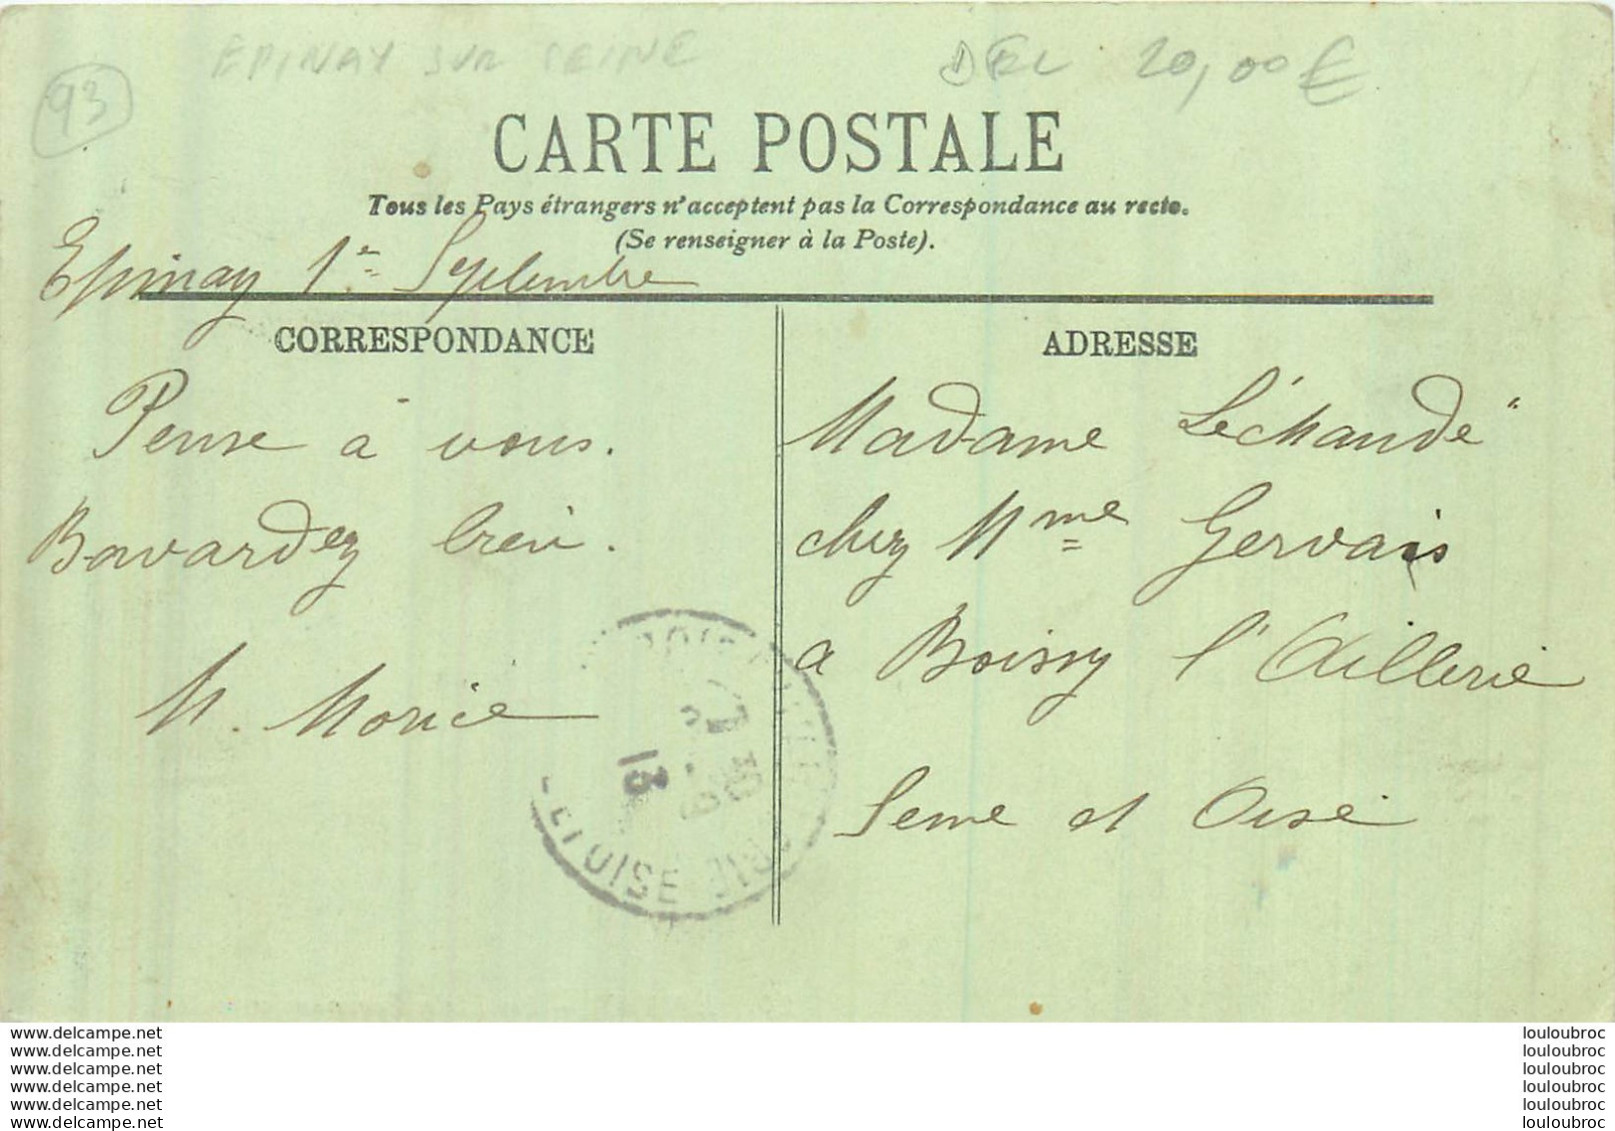 EPINAY SUR SEINE
DEL 20,00€
93
CARTE POSTALE
Tous les Pays étrangers n'acceptent pas la Correspondance au recto.
(Se renseigner à la Poste).
Epinay 1er Septembre
CORRESPONDANCE
Pense à vous.
Bavardez bien.
M. Morice
ADRESSE
Madame Léchaudé
chez Mme Gervais
a Boissy l'Aillerie
Seine et Oise
13
ET OISE
www.delcampe.net
www.delcampe.net
www.delcampe.net
www.delcampe.net
www.delcampe.net
www.delcampe.net
louloubroc
louloubroc
louloubroc
louloubroc
louloubroc
louloubroc